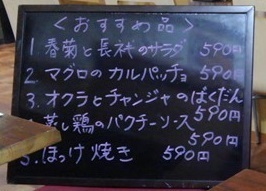 <おすすめ品>
1 春菊と長芋のサラダ 590円
2. マグロのカルパッチョ 590円
3. オクラとチャンジャのばくだん 590円
蒸し鶏のパクチーソース 590円
5. ほっけ焼き 590円